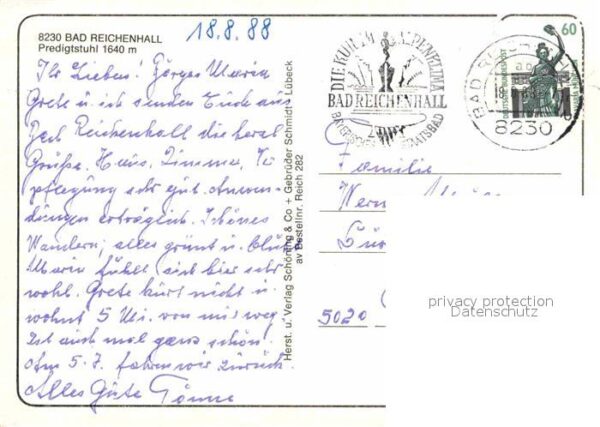 8230 BAD REICHENHALL
Predigtstuhl 1640 m
18.8.88
Ihr Lieben! Maria
Grete u. ich senden Euch aus
Bad Reichenhall die herzl.
Grüße. Haus, Zimmer, Ver
pflegung sehr gut. Anwen-
dungen erträglich. Schönes
Wandern, alles grünt u. blüht
Maria fühlt sich hier sehr
wohl. Grete kurt nicht u.
wohnt 5 Mi. von mir weg.
Ist auch mal ganz schön.
Am 5.7. fahren wir zurück.
Alles Gute
Herst. u. Verlag Schöning & Co + Gebrüder Schmidt, Lübeck
av Bestellnr. Reich 282
DIE KUR IM ALPENKLIMA
BAD REICHENHALL
BAYERISCHES STAATSBAD
BAD REICHENHALL
8230
60
Familie
5020
privacy protection
Datenschutz